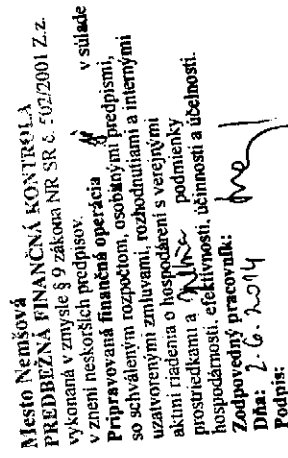 Mesto Nemšová
PREDBEŽNÁ FINANČNÁ KONTROLA
vykonaná v zmysle § 9 zákona NR SR č. 502/2001 Z.z.
v znení neskorších predpisov.
Pripravovaná finančná operácia je v súlade
so schváleným rozpočtom, osobitnými predpismi,
uzatvorenými zmluvami, rozhodnutiami a internými
aktmi riadenia o hospodárení s verejnými
prostriedkami a podmienky
hospodárnosti, efektívnosti, účinnosti a účelnosti.
Zodpovedný pracovník:
Dňa: 2.6.2014
Podpis: